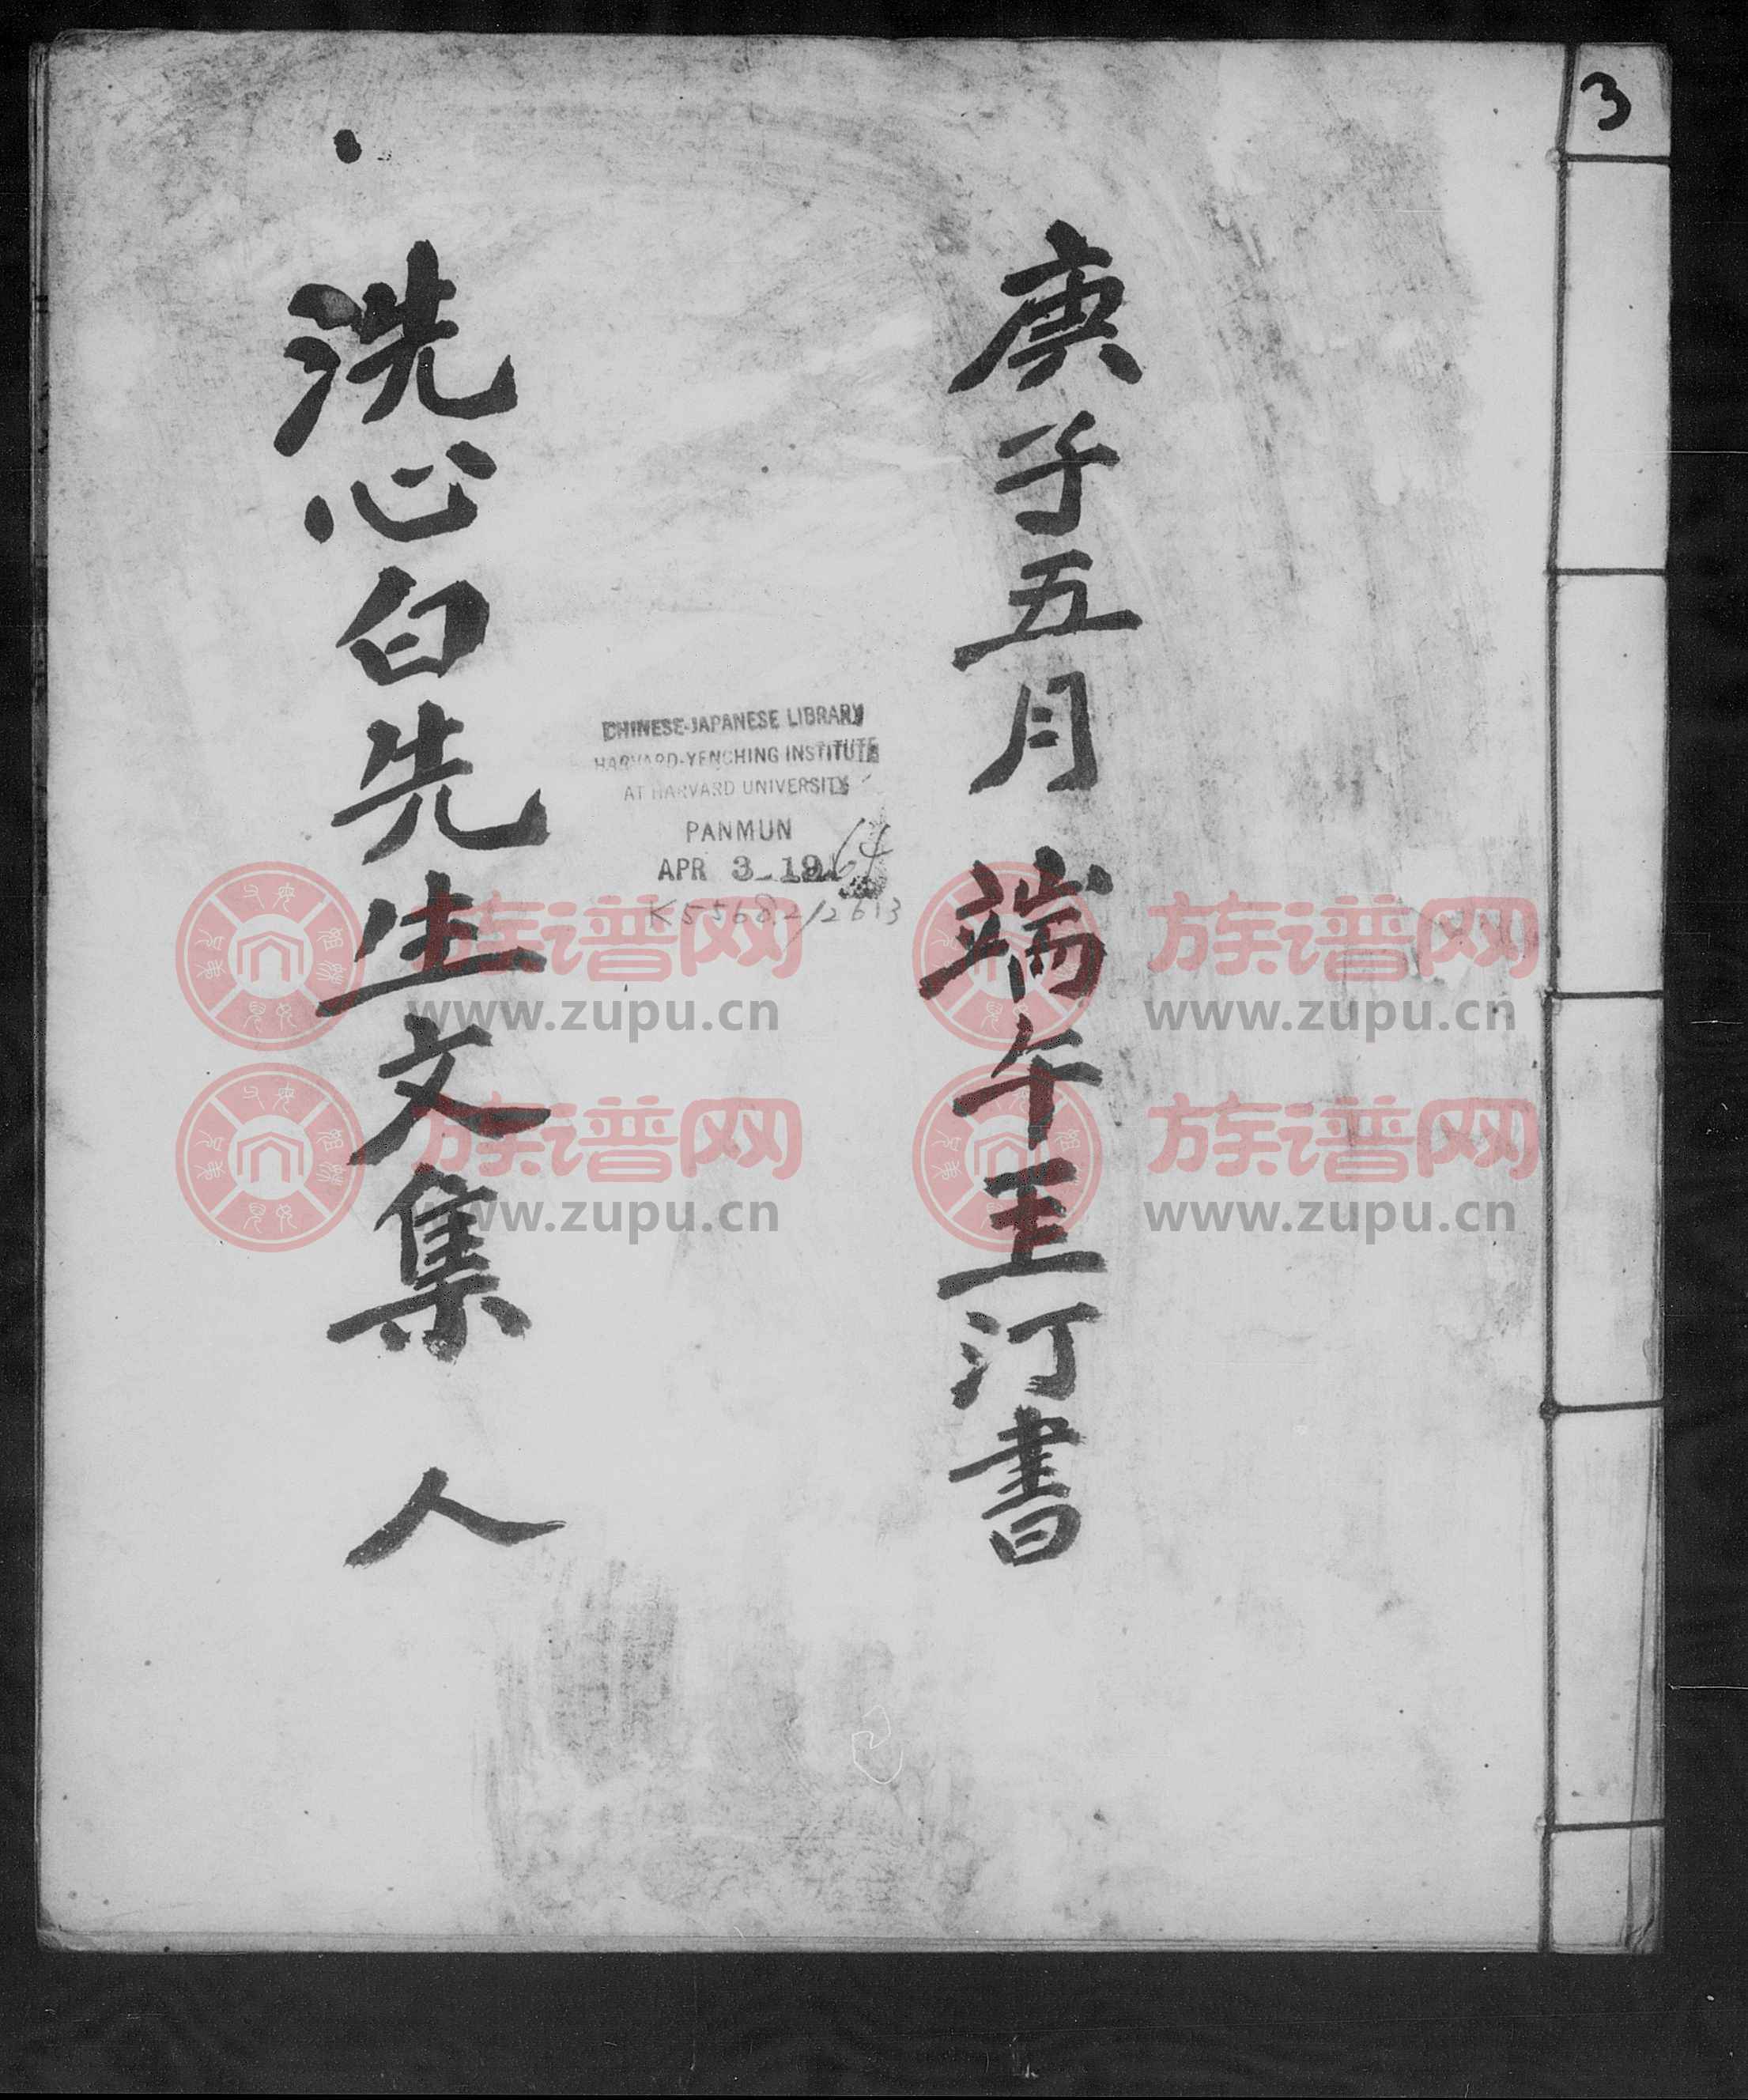 3
庚子五月 端午 玉汀書
洗心白先生文集 人
CHINESE-JAPANESE LIBRARY
HARVARD-YENCHING INSTITUTE
AT HARVARD UNIVERSITY
PANMUN
APR 3 1964
K5568.2/2613
族谱网 族谱网
www.zupu.cn www.zupu.cn
族谱网 族谱网
www.zupu.cn www.zupu.cn